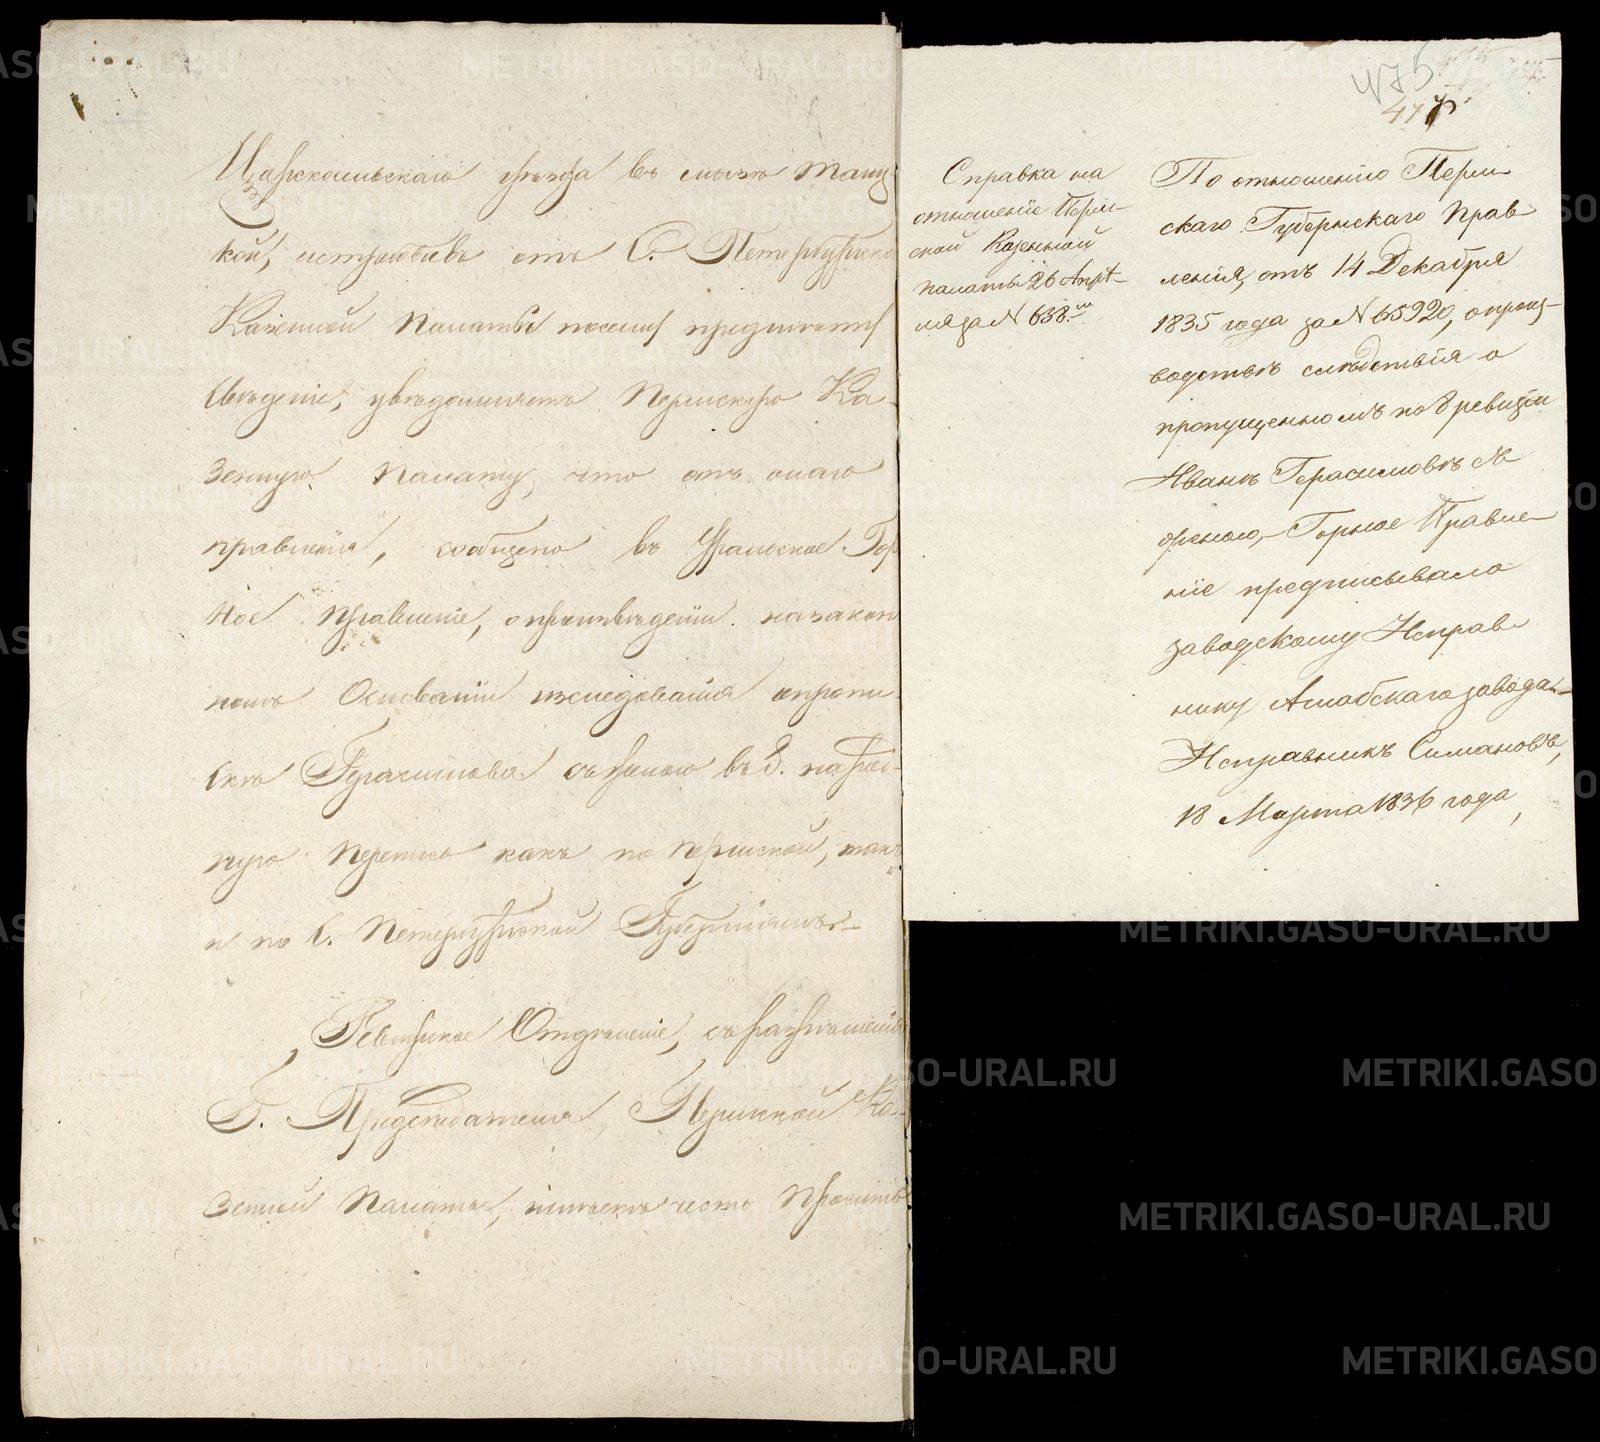 Царскосельскаго уѣзда въ мызѣ Таиц
кой, истребовавъ отъ С. Петербургско
Казенной Палаты
свѣденіе, увѣдомляетъ Пермскую Ка-
зенную Палату, что отъ онаго
правленія, сообщено въ Уральское Гор
ное Правленіе, о произведеніи на закон
номъ Основаніи изследованія о пропи-
скѣ Герасимова съ женою въ 8. народ-
ную Перепись какъ по Пермской, такъ
и по С. Петербургской Губерніямъ.
Ревизское Отдѣленіе, съ разрѣшенія
Г. Предсѣдателя, Пермской Ка-
зенной Палаты, имѣетъ честь просить
475
477
Справка на
отношеніе Перм-
ской Казенной
палаты 26 Апрѣ-
ля за № 638.
По отношенію Перм-
скаго Губернскаго Прав-
ленія, отъ 14 Декабря
1835 года за № 65920, о произ-
водствѣ слѣдствія о
пропущенномъ по 8 ревизіи
Иванѣ Герасимовѣ съ
женою, Горное Правле-
ніе предписывало
заводскому Исправ-
нику завода
Исправникъ Симановъ,
18 Марта 1836 года,
METRIKI.GASO-URAL.RU